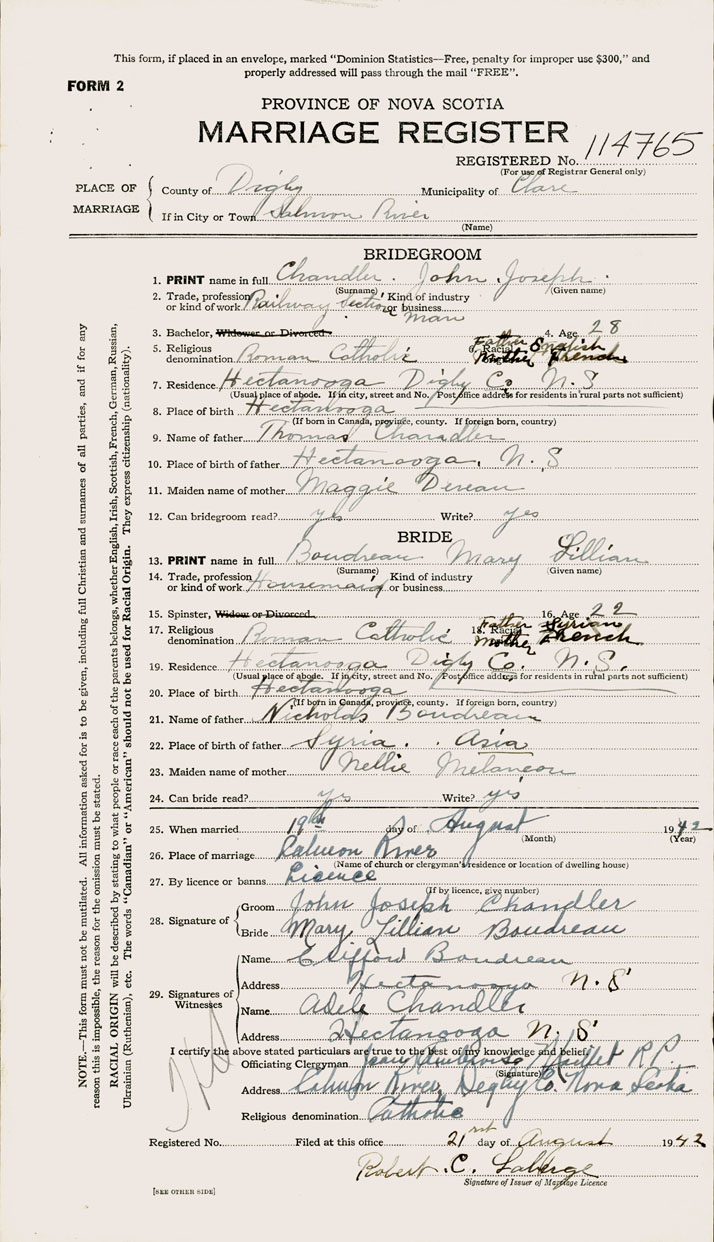 This form, if placed in an envelope, marked "Dominion Statistics—Free, penalty for improper use $300," and
properly addressed will pass through the mail "FREE".
FORM 2
PROVINCE OF NOVA SCOTIA
MARRIAGE REGISTER
REGISTERED No. 114765
(For use of Registrar General only)
PLACE OF MARRIAGE
County of Digby Municipality of Clare
If in City or Town Salmon River
(Name)
BRIDEGROOM
1. PRINT name in full Chandler. John Joseph.
(Surname) (Given name)
2. Trade, profession or kind of work Railway Section man Kind of industry or business
3. Bachelor, Widower or Divorced 4. Age 28
5. Religious denomination Roman Catholic 6. Racial Father English Mother French
7. Residence Hectanooga Digby Co. N.S
(Usual place of abode. If in city, street and No. Post office address for residents in rural parts not sufficient)
8. Place of birth Hectanooga
(If born in Canada, province, county. If foreign born, country)
9. Name of father Thomas Chandler
10. Place of birth of father Hectanooga, N.S
11. Maiden name of mother Maggie Deveau
12. Can bridegroom read? yes Write? yes
BRIDE
13. PRINT name in full Boudreau Mary Lillian
(Surname) (Given name)
14. Trade, profession or kind of work Housemaid Kind of industry or business
15. Spinster, Widow or Divorced 16. Age 22
17. Religious denomination Roman Catholic 18. Racial Father Syrian Mother French
19. Residence Hectanooga Digby Co. N.S.
(Usual place of abode. If in city, street and No. Post office address for residents in rural parts not sufficient)
20. Place of birth Hectanooga
(If born in Canada, province, county. If foreign born, country)
21. Name of father Nicholas Boudreau
22. Place of birth of father Syria. Asia
23. Maiden name of mother Nellie Melancon
24. Can bride read? yes Write? yes
25. When married 19th day of August 1942
(Month) (Year)
26. Place of marriage Salmon River
(Name of church or clergyman's residence or location of dwelling house)
27. By licence or banns Licence
(If by licence, give number)
28. Signature of
Groom John Joseph Chandler
Bride Mary Lillian Boudreau
29. Signatures of Witnesses
Name Boudreau
Address Hectanooga N.S
Name Adele Chandler
Address Hectanooga N.S
I certify the above stated particulars are true to the best of my knowledge and belief.
Officiating Clergyman Maillet
(Signature)
Address Salmon River, Digby Co. Nova Scotia
Religious denomination Catholic
Registered No. Filed at this office 21rst day of August 1942
Robert C. Laberge
Signature of Issuer of Marriage Licence
[SEE OTHER SIDE]
NOTE.—This form must not be mutilated. All information asked for is to be given, including full Christian and surnames of all parties, and if for any
reason this is impossible, the reason for the omission must be stated.
RACIAL ORIGIN will be described by stating to what people or race each of the parents belongs, whether English, Irish, Scottish, French, German, Russian,
Ukrainian (Ruthenian), etc. The words "Canadian" or "American" should not be used for Racial Origin. They express citizenship (nationality).